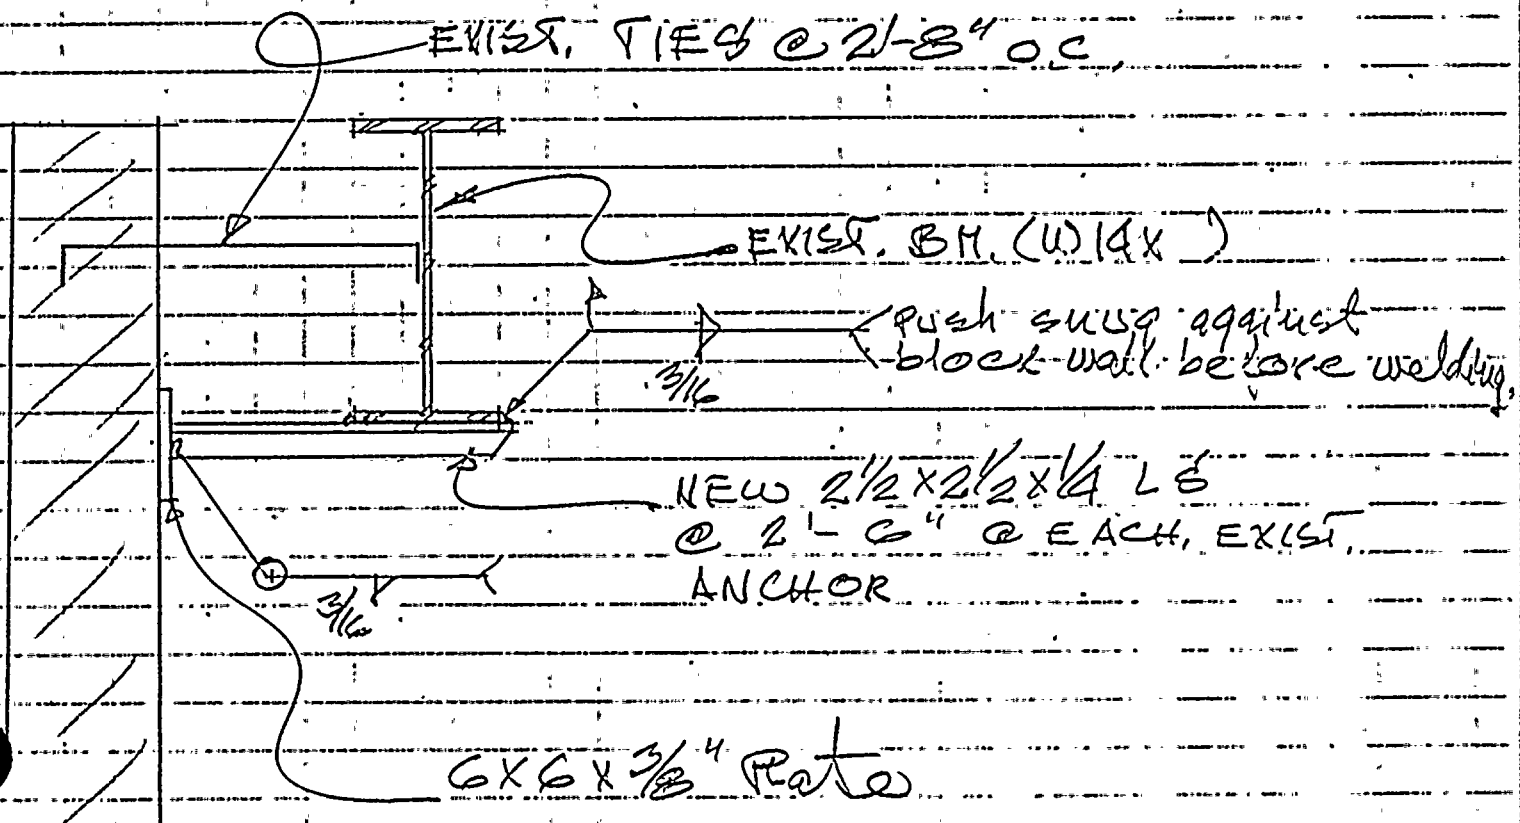 EXIST. TIES @ 2'-8" O.C.
EXIST. BM. (W14X )
3/16
push snug against
block wall before welding.
NEW 2 1/2 X 2 1/2 X 1/4 LS
@ 2'-6" @ EACH. EXIST.
ANCHOR
3/16
6 X 6 X 3/8" Plate